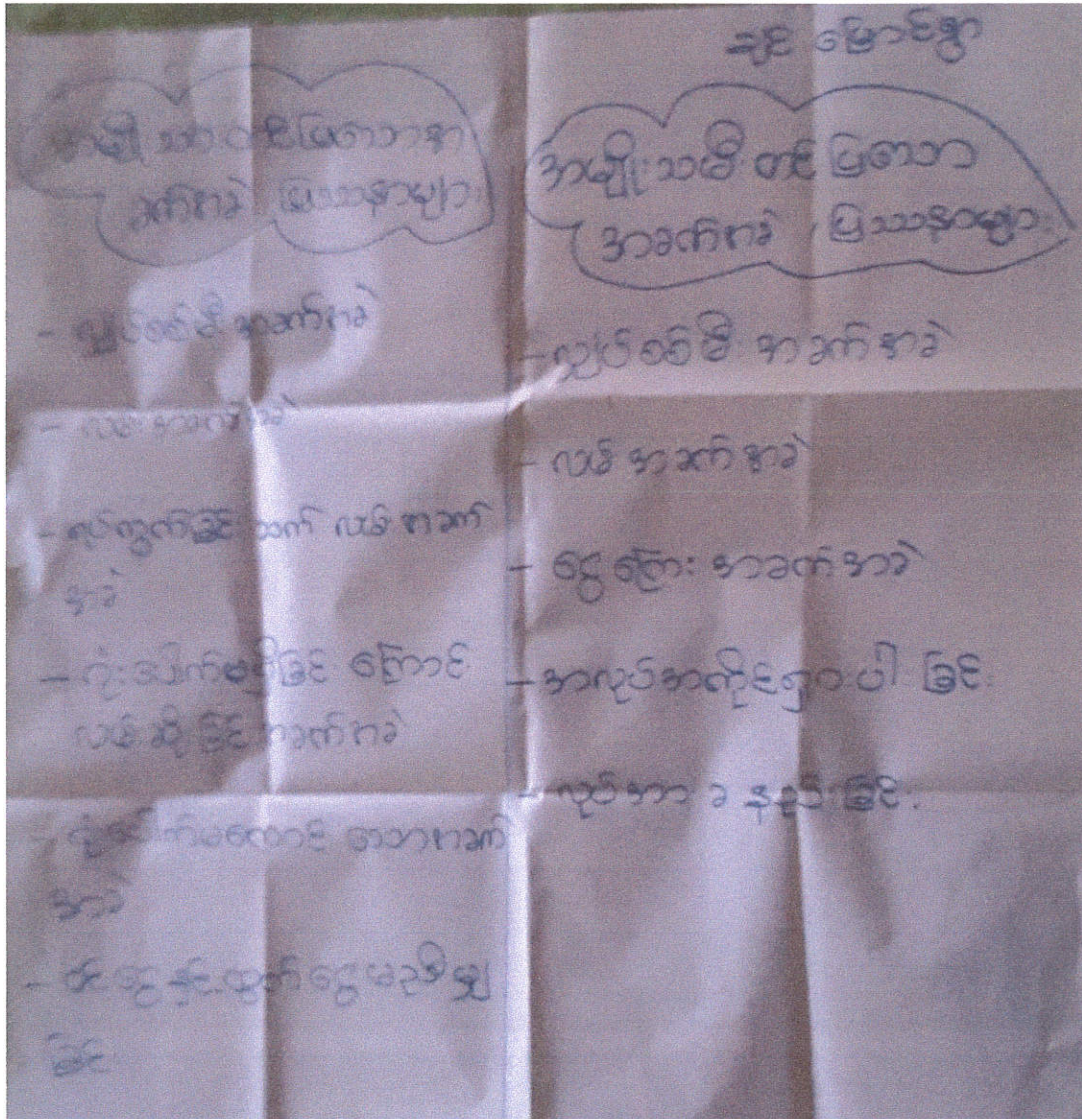 မြောင်ရွာ
အမျိုးသားတင်ပြသော
အခက်အခဲ ပြဿနာများ
- လျှပ်စစ်မီး အခက်အခဲ
- လမ်းအခက်အခဲ
- ရပ်ကွက်ခြင်းဆက် လမ်းအခက်
အခဲ
- ဂုံးပေါက်မရှိခြင်း ကြောင့်
လမ်းဆိုးခြင်း အခက်အခဲ
- ဂုံးပေါက်မကောင်းသောအခက်
အခဲ
- ဝင်ငွေနှင့်ထွက်ငွေမညီမျှ
ခြင်း
အမျိုးသမီးတင်ပြသော
အခက်အခဲ ပြဿနာများ
- လျှပ်စစ်မီး အခက်အခဲ
- လမ်းအခက်အခဲ
- ငွေကြေးအခက်အခဲ
- အလုပ်အကိုင်ရှားပါးခြင်း
- လုပ်အားခနည်းခြင်း